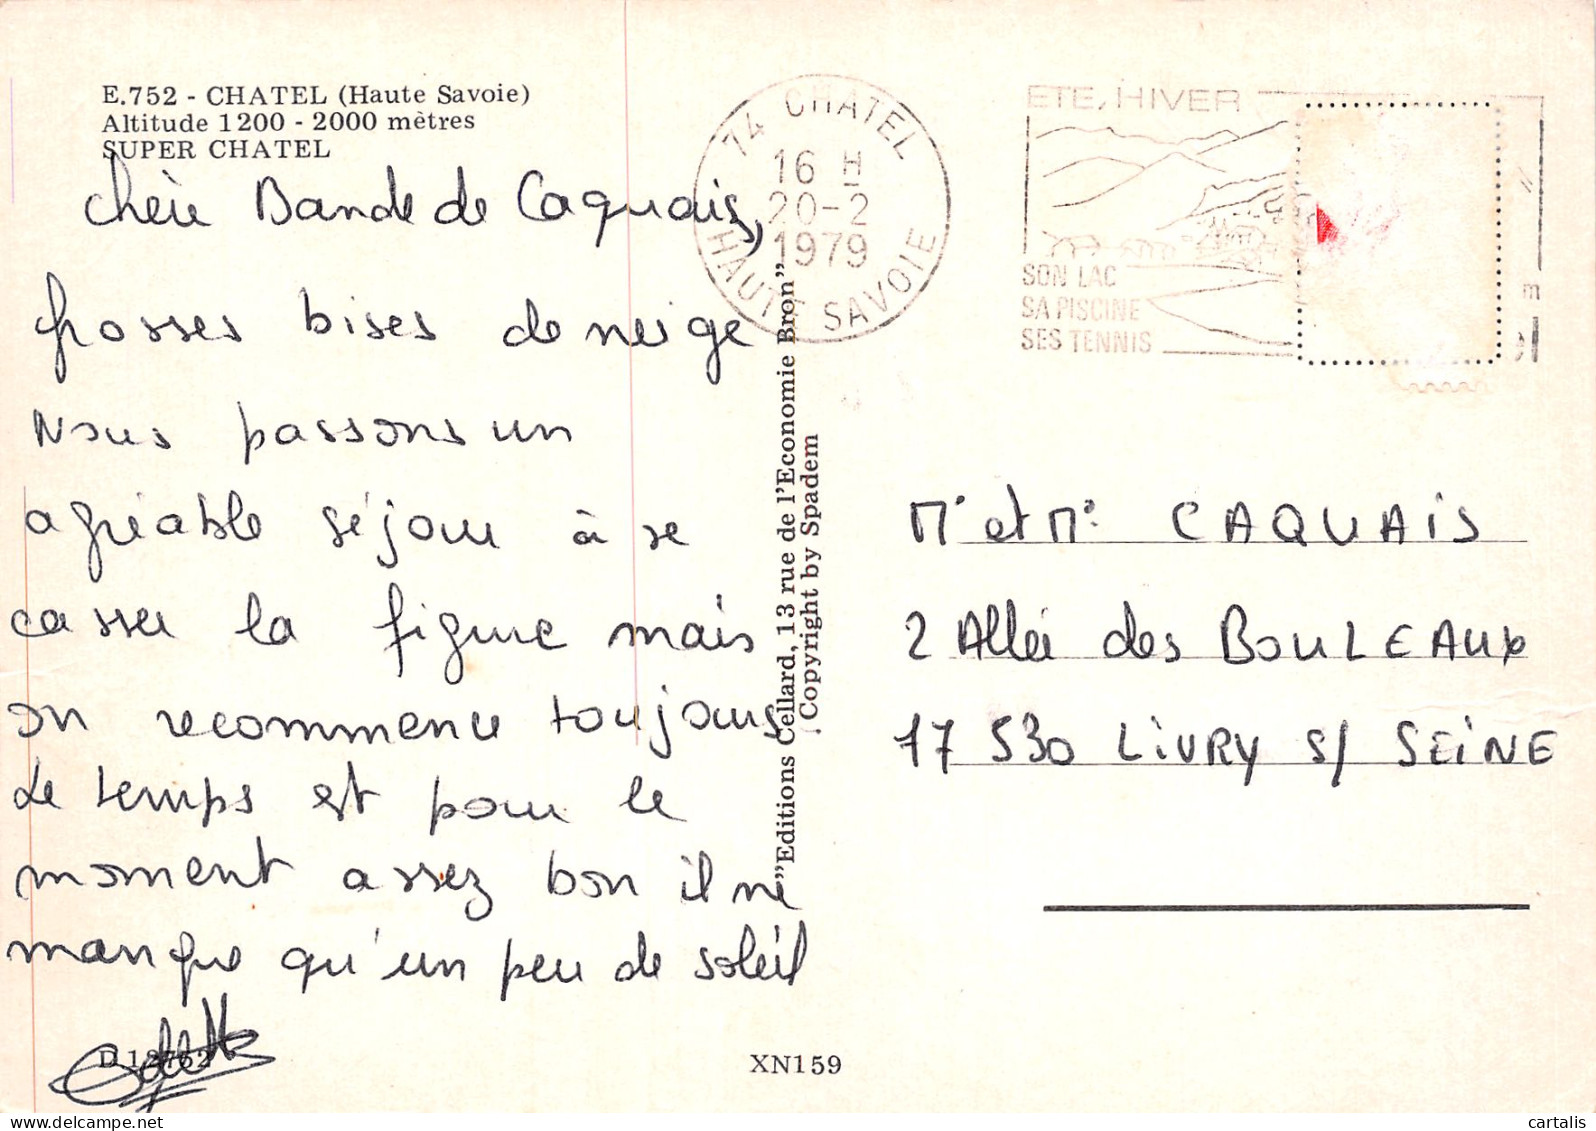 E.752 - CHATEL (Haute Savoie)
Altitude 1200 - 2000 mètres
SUPER CHATEL
Chère Bande de Caquais,
grosses bises de neige
Nous passons un
agréable séjour à se
casser la figure mais
on recommence toujours
Le temps est pour le
moment assez bon il ne
manque qu'un peu de soleil
Colette
D 12762
XN159
"Editions Cellard, 13 rue de l'Economie Bron"
Copyright by Spadem
74 CHATEL
16 H
20-2
1979
HAUTE SAVOIE
ETE, HIVER
SON LAC
SA PISCINE
SES TENNIS
Mr et Me CAQUAIS
2 Allée des BOULEAUX
17 530 LIVRY s/ SEINE
cartalis
www.delcampe.net